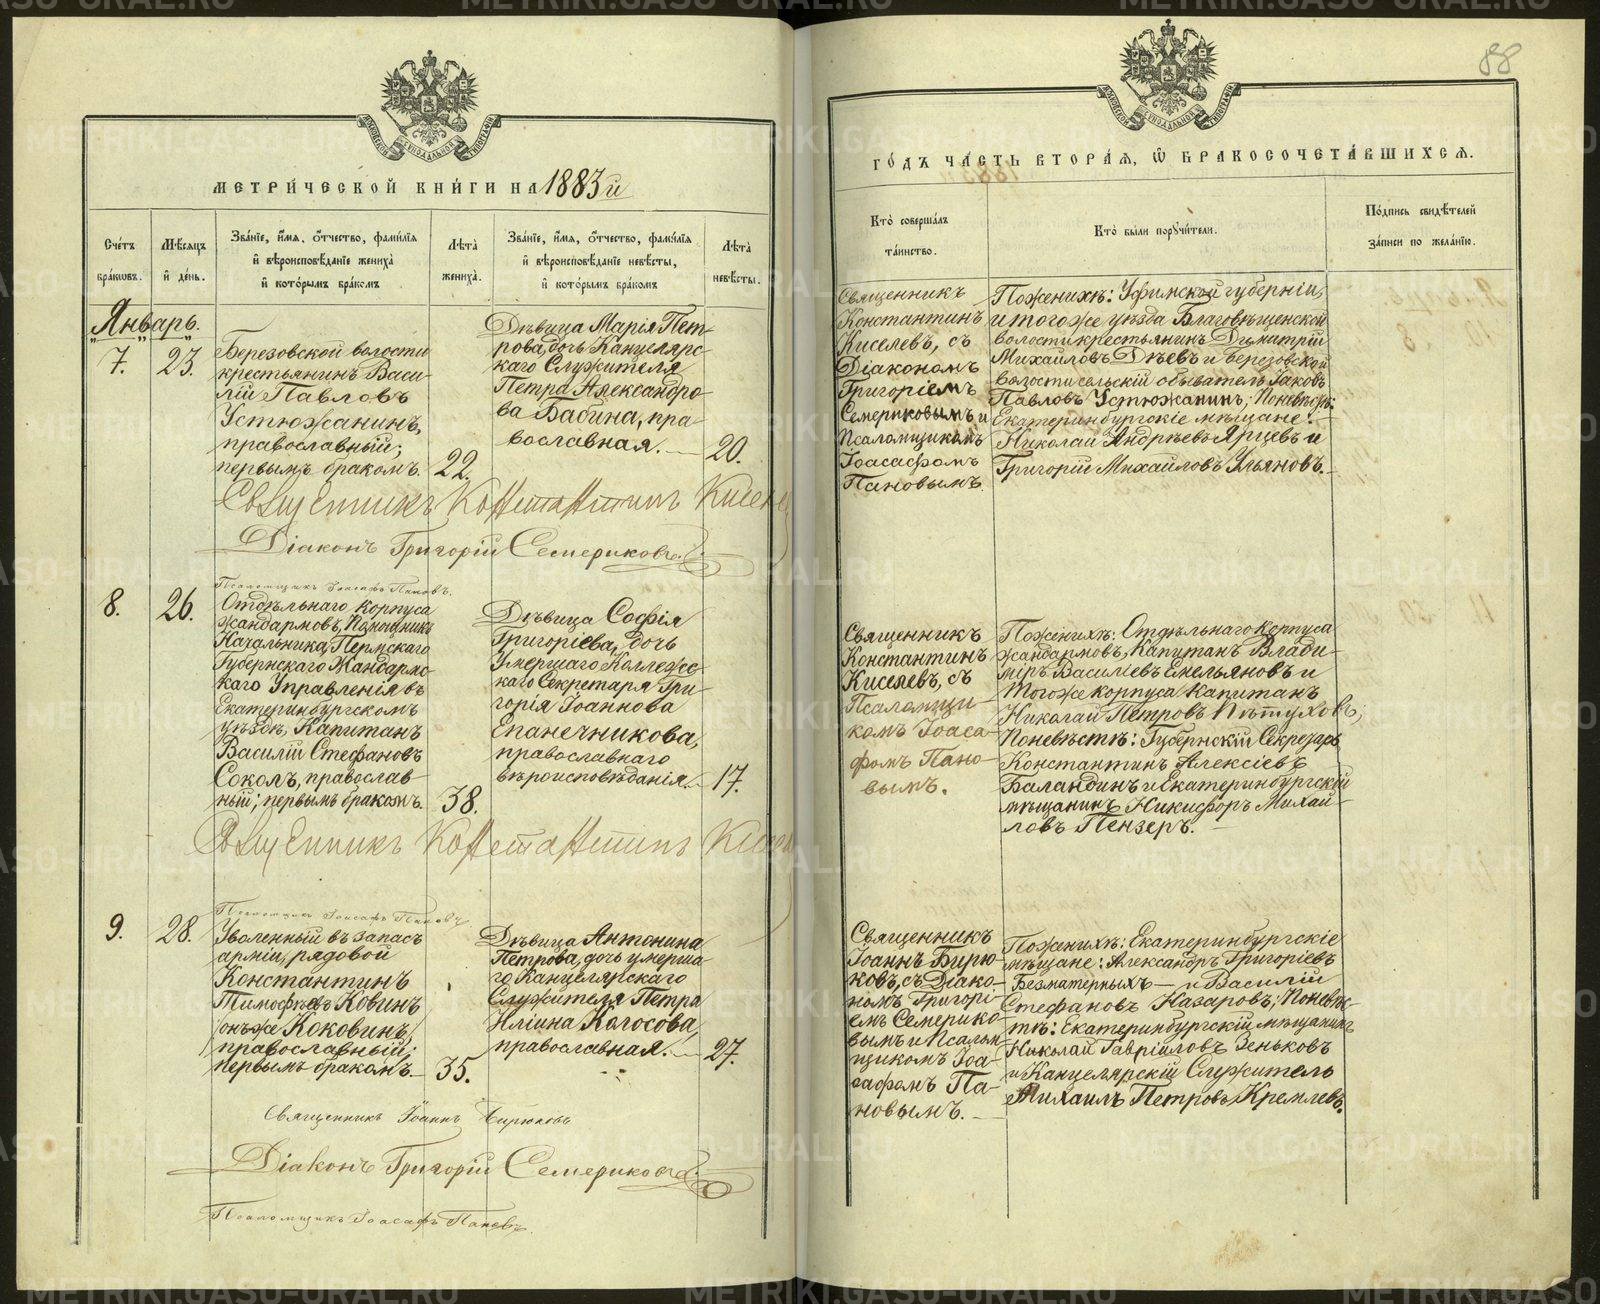 МЕТРИ́ЧЕСКОЙ КНИ́ГИ НА 1883 й
Сче́тъ бра́кωвъ.
Мѣ́сяцъ и҆ де́нь.
Зва́нїе, и҆́мя, ѻ҆́тчество, фами́лїя
и҆ вѣроисповѣ́данїе жениха̀
и҆ кото́рымъ бра́комъ
Лѣ́та жениха̀.
Зва́нїе, и҆́мя, ѻ҆́тчество, фами́лїя
и҆ вѣроисповѣ́данїе невѣ́сты,
и҆ кото́рымъ бра́комъ
Лѣ́та невѣ́сты.
Январь.
7.
23.
Березовской волости
крестьянинъ Васи-
лій Павловъ
Устюжанинъ,
православный;
первымъ бракомъ.
22.
Дѣвица Марія Пет-
рова, дочь Канцелярс-
каго Служителя
Петра Александро-
ва Бабина, пра-
вославная.
20.
Священникъ Константинъ
Діаконъ Григорій Семериковъ.
Псаломщикъ Іоасафъ Пановъ.
8.
26.
Отдѣльнаго корпуса
жандармовъ, Помощникъ
Начальника Пермскаго
Губернскаго Жандармс-
каго Управленія въ
Екатеринбургскомъ
уѣздѣ, Капитанъ
Василій Стефановъ
Соколъ, православ-
ный; первымъ бракомъ.
38.
Дѣвица Софія
Григоріева, дочь
Умершаго Коллежс-
каго Секретаря Гри-
горія Іоаннова
Епанечникова,
православнаго
вѣроисповѣданія.
17.
Священникъ Константинъ
Псаломщикъ Іоасафъ Пановъ
9.
28.
Уволенный въ запасъ
арміи, рядовой
Константинъ
Тимофѣевъ Ковинъ
/онъ же Коковинъ/
православный;
первымъ бракомъ.
35.
Дѣвица Антонина
Петрова, дочь умерша-
го Канцелярскаго
Служителя Петра
Иліина Колосова,
православная.
27.
Священникъ Іоаннъ Бирюковъ
Діаконъ Григорій Семериковъ.
Псаломщикъ Іоасафъ Пановъ.
88
ГО́ДЪ ЧА́СТЬ ВТОРА́Я, Ѽ БРАКОСОЧЕТА́ВШИХСЯ.
Кто̀ соверша́лъ та́инство.
Кто̀ бы́ли пору́чители.
По́дпись свидѣ́телей за́писи по жела́нїю.
Священникъ
Константинъ
Киселевъ, съ
Діакономъ
Григоріемъ
Семериковымъ и
Псаломщикомъ
Іоасафомъ
Пановымъ.
По женихѣ: Уфимской губерніи,
и того же уѣзда Благовѣщенской
волости крестьянинъ Дьмитрій
Михайловъ Дѣевъ и березовской
волости сельскій обыватель Іаковъ
Павловъ Устюжанинъ; По невѣстѣ:
Екатеринбургскіе мѣщане:
Николай Андрѣевъ Ярцевъ и
Григорій Михайловъ Ульяновъ.
Священникъ
Константинъ
Киселевъ, съ
Псаломщи-
комъ Іоаса-
фомъ Пано-
вымъ.
По женихѣ: Отдѣльнаго Корпуса
жандармовъ, Капитанъ Влади-
мiръ Василіевъ Емельяновъ и
того же корпуса Капитанъ
Николай Петровъ Пѣтуховъ;
По невѣстѣ: Губернскій Секретарь
Константинъ Алексіевъ
Баландинъ и Екатеринбургскій
мѣщанинъ Никифоръ Михай-
ловъ Пензеръ.
Священникъ
Іоаннъ Бирю-
ковъ, съ Діако-
номъ Григорі-
емъ Семерико-
вымъ и Псалом-
щикомъ Іоа-
сафомъ Па-
новымъ.
По женихѣ: Екатеринбургскіе
мѣщане: Александръ Григоріевъ
Безматерныхъ и Василій
Стефановъ Назаровъ; По невѣс-
тѣ: Екатеринбургскій мѣщанинъ
Николай Гавріиловъ Зеньковъ
и Канцелярскій Служитель
Михаилъ Петровъ Кремлевъ.
METRIKI.GASO-URAL.RU